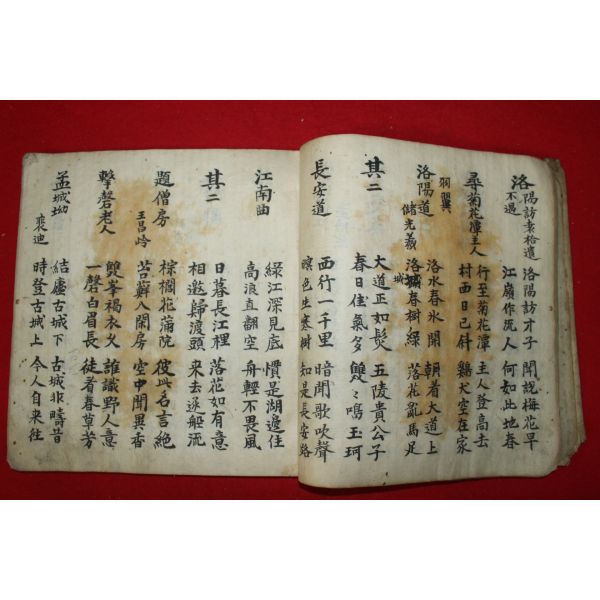 洛陽訪袁拾遺不遇 洛陽訪才子 聞說梅花早
江嶺作流人 何如此地春
尋菊花潭主人 行至菊花潭 主人登高去
村西日已斜 鷄犬空在家
羽翼
洛陽道 洛水春氷開 朝着大道上
儲光羲 洛城春樹綠 落花亂馬足
其二 大道正如髮 五陵貴公子
春日佳氣多 雙々鳴玉珂
長安道 西行一千里 暗聞歌吹聲
暝色生寒樹 知是長安路
江南曲 綠江深見底 慣是湖邊住
高浪直翻空 舟輕不畏風
其二 日暮長江裡 落花如有意
相邀歸渡頭 來去逐船流
題僧房 棕櫚花滿院 彼此名言絶
王昌岭 苔蘚入閑房 空中聞異香
擊磬老人 雙峯褐衣火 誰識野人意
一磬白眉長 徒看春草芳
孟城坳 結廬古城下 古城非疇昔
裴迪 時登古城上 今人自来往